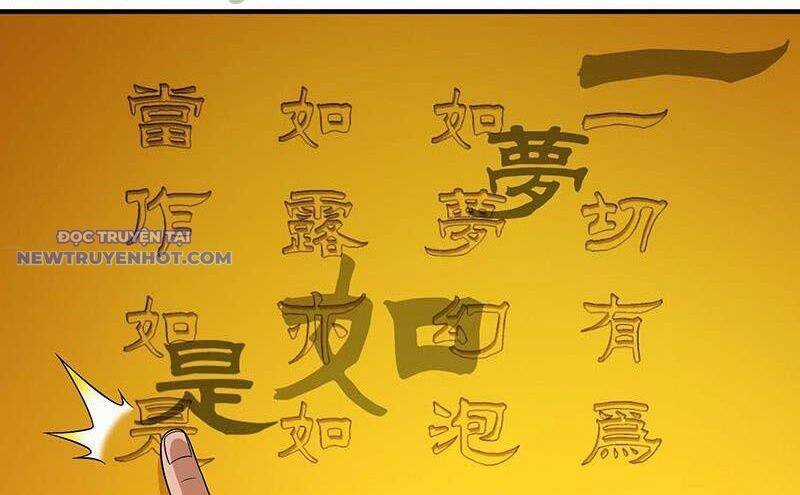 一切有爲
如夢幻泡
如露亦如
當作如是
一
夢
如
是
ĐỌC TRUYỆN TẠI
NEWTRUYENHOT.COM